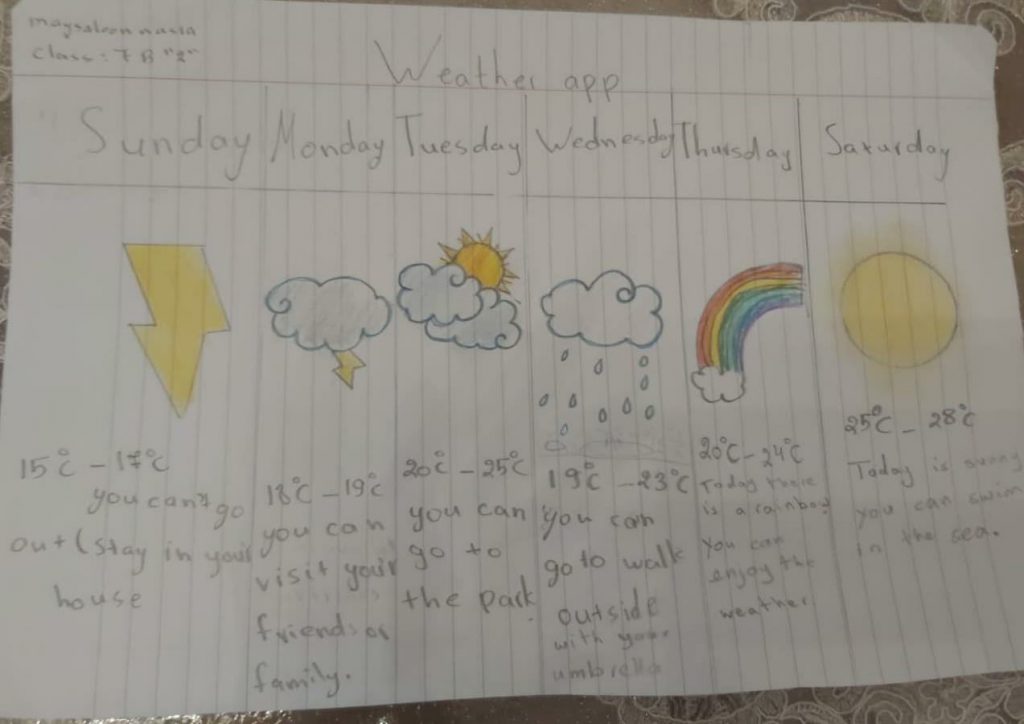 maysaloon nasra
Class: 7 B "2"
Weather app
Sunday Monday Tuesday Wednesday Thursday Saturday
15°C - 17°C
you can't go
out (stay in your
house
18°C - 19°C
you can
visit your
friends or
family.
20°C - 25°C
you can
go to
the park
19°C - 23°C
you can
go to walk
outside
with your
umbrella
20°C - 24°C
Today there
is a rainbow
you can
enjoy the
weather
25°C - 28°C
Today is sunny
you can swim
in the sea.